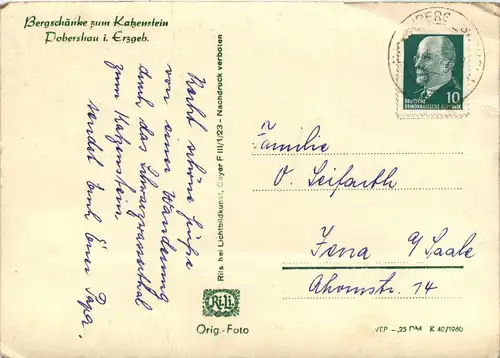 Bergschänke zum Katzenstein
Pobershau i. Erzgeb.
Recht schöne Grüße
von einer Wanderung
durch das Schwarzwassertal
zum Katzenstein
sendet Euch Euer Papa.
Rils hei Lichtbildkunst, Geyer F III/1/23 - Nachdruck verboten
RiLi
Orig.-Foto
DEUTSCHE
DEMOKRATISCHE REPUBLIK
10
Familie
O. Seifarth
Jena a/Saale
Ahornstr. 14
VEP -,25 DM K 40/1960